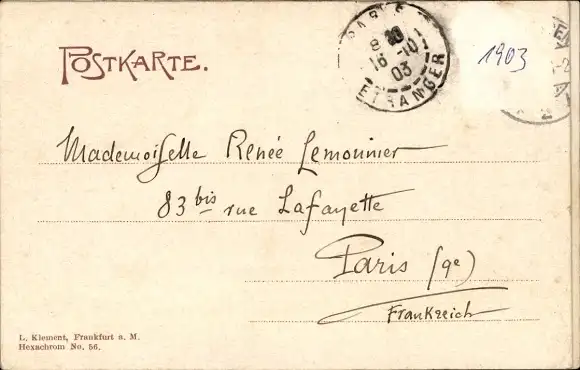 POSTKARTE.
PARIS
8
16-10
03
ETRANGER
1903
2
Mademoiselle Renée Lemounier
83 bis rue Lafayette
Paris (9e)
Frankreich
L. Klement, Frankfurt a. M.
Hexachrom No. 56.